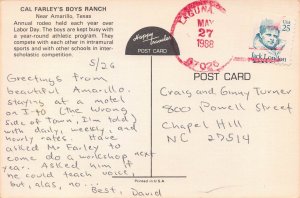 CAL FARLEY'S BOYS RANCH
Near Amarillo, Texas
Annual rodeo held each year over
Labor Day. The boys are kept busy with
a year-round athletic program. They
compete with each other in intramural
sports and with other schools in inter-
scholastic competition.
5/26
Greetings from
beautiful Amarillo.
staying at a motel
on I-40 (the wrong
side of Town, I'm told)
with daily, weekly, and
hourly rates. Have
asked Mr Farley to
come do a workshop next
year. Asked him if
he could teach voice,
but, alas, no.
Best, David
Happy Traveler
POST CARD
LAGUNA
MAY
27
1988
87026
USA
25
Jack London
POST CARD
Craig and Ginny Turner
800 Powell Street
Chapel Hill
NC 27514